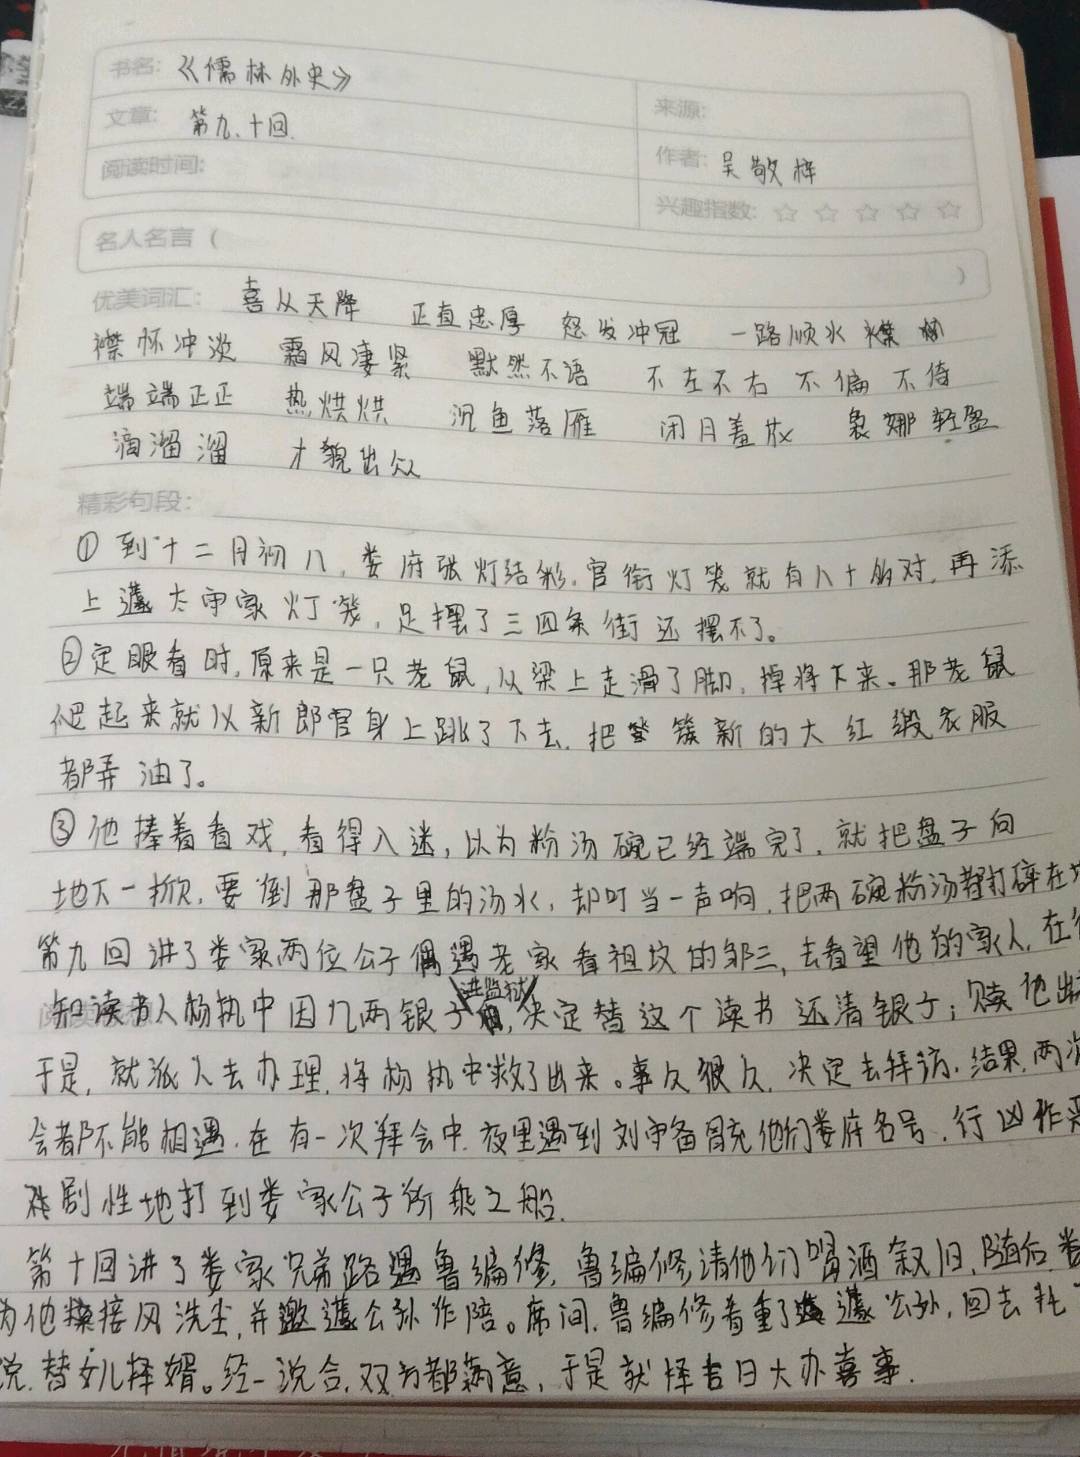 书名: 《儒林外史》
来源:
文章: 第九、十回.
作者: 吴敬梓
阅读时间:
兴趣指数: ☆ ☆ ☆ ☆ ☆
名人名言 ( )
优美词汇: 喜从天降 正直忠厚 怒发冲冠 一路顺水
襟怀冲淡 霜风凄紧 默然不语 不左不右 不偏不倚
端端正正 热烘烘 沉鱼落雁 闭月羞花 袅娜轻盈
滴溜溜 才貌出众
精彩句段:
①到十二月初八,娄府张灯结彩.官衔灯笼就有八十多对,再添
上蘧太守家灯笼,足摆了三四条街还摆不了。
②定眼看时,原来是一只老鼠,从梁上走滑了脚,掉将下来。那老鼠
爬起来就从新郎官身上跳了下去.把簇新的大红缎衣服
都弄油了。
③他捧着看戏,看得入迷,以为粉汤碗已经端完了,就把盘子向
地下一掀,要倒那盘子里的汤水,却叮当一声响,把两碗粉汤都打碎在
第九回讲了娄家两位公子偶遇老家看祖坟的邹三,去看望他的家人,在
知读书人杨执中因几两银子进监狱,决定替这个读书还清银子;赎他出
于是,就派人去办理,将杨执中救了出来。事久很久,决定去拜访.结果,两次
会都不能相遇.在有一次拜会中.夜里遇到刘守备冒充他们娄府名号,行凶作恶
戏剧性地打到娄家公子所乘之船.
第十回讲了娄家兄弟路遇鲁编修,鲁编修请他们喝酒叙旧,随后娄
为他接风洗尘,并邀蘧公孙作陪。席间,鲁编修看重了蘧公孙,回去托
说.替女儿择婿。经一说合,双方都满意,于是就择吉日大办喜事.